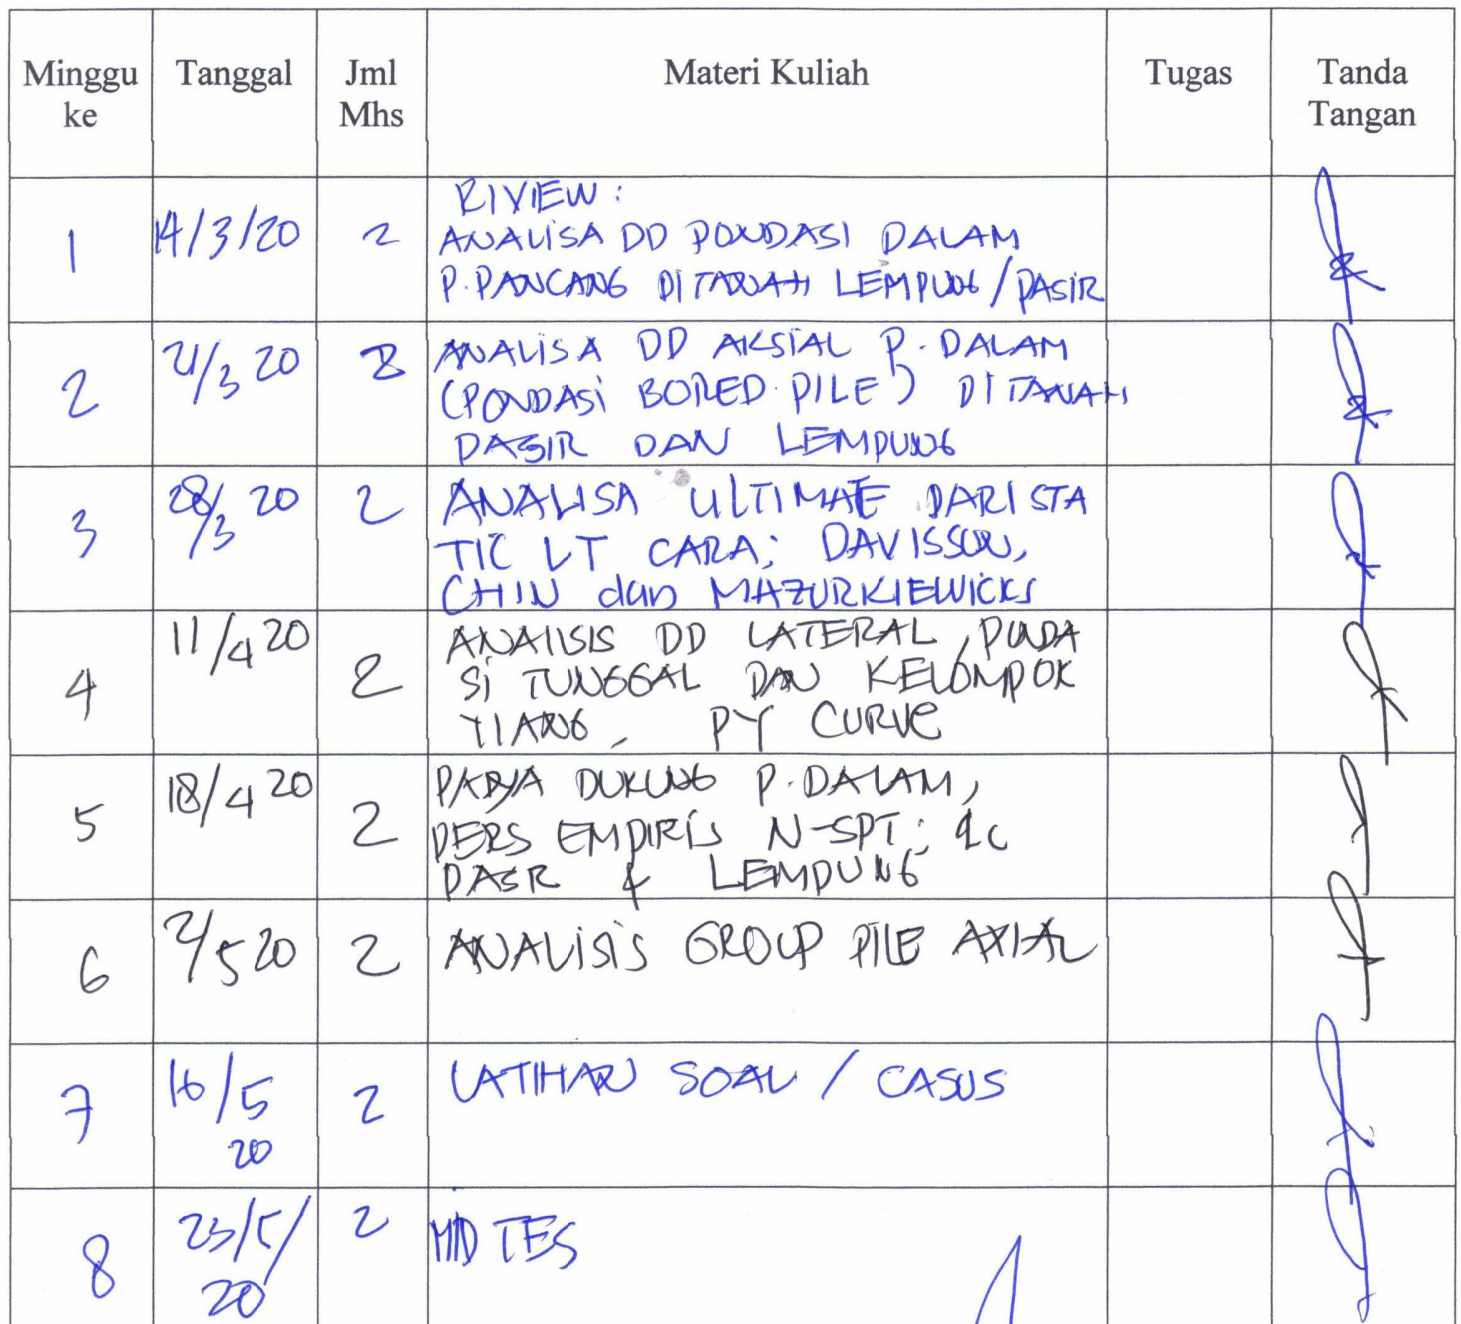 Minggu ke Tanggal Jml Mhs Materi Kuliah Tugas Tanda Tangan
1 14/3/20 2 RIVIEW :
ANALISA DD PONDASI DALAM
P. PANCANG DI TANAH LEMPUNG / PASIR
2 21/3 20 2 ANALISA DD AKSIAL P. DALAM
(PONDASI BORED PILE) DI TANAH
PASIR DAN LEMPUNG
3 28/3 20 2 ANALISA ULTIMATE DARI STA
TIC LT CARA; DAVISSON,
CHIN dan MAZURKIEWICKS
4 11/4 20 2 ANALISIS DD LATERAL, PONDA
Si TUNGGAL DAN KELOMPOK
TIANG, PY CURVE
5 18/4 20 2 DAYA DUKUNG P. DALAM,
PERS EMPIRIS N-SPT; qc
PASR & LEMPUNG
6 2/5 20 2 ANALISIS GROUP PILE AXIAL
7 16/5 20 2 LATIHAN SOAL / CASUS
8 23/5/20 2 MID TES